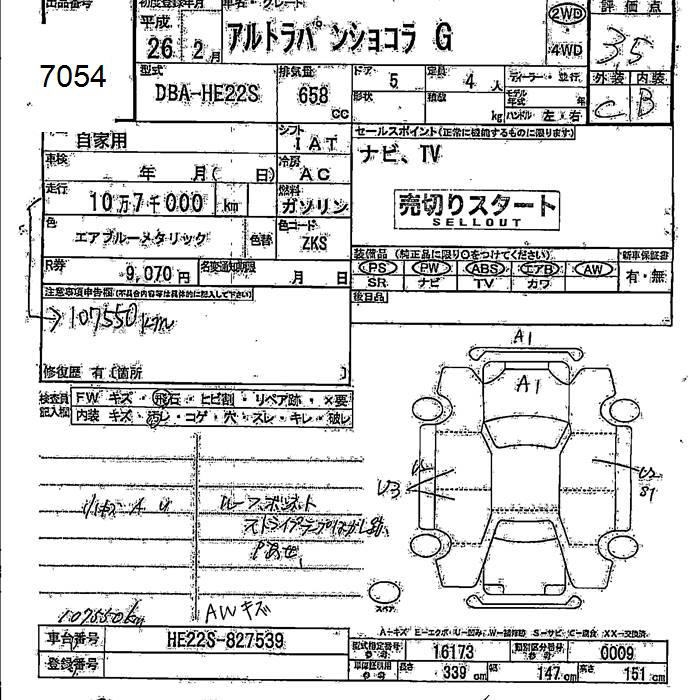 出品番号 初度登録年月 車名・グレード 評価点
平成 26年 2月 アルトラパンショコラ G 2WD 4WD 3.5
7054
型式 DBA-HE22S 排気量 658 cc ドア 5 定員 4 人 ディーラー・並行 外装 内装
形状 積載 kg モデル年式 年 C B
ハンドル 左・右
自家用 シフト IAT セールスポイント(正常に機能するものに限ります)
車検 年 月( 日) 冷房 AC ナビ、TV
走行 10万7千000 km 燃料 ガソリン 売切りスタート
SELLOUT
色 エアブルーメタリック 色替 色コード ZKS
装備品(純正品に限り○をつけてください) 新車保証書
R券 9,070円 名変通知期限 月 日 PS PW ABS エアB AW 有・無
SR ナビ TV カワ
注意事項申告欄(不具合内容等は具体的に記入して下さい) 後日品
→107550km
修復歴 有(箇所 )
検査員記入欄 FW キズ・飛石・ヒビ割・リペア跡・×要
内装 キズ・汚レ・コゲ・穴・スレ・キレ・破レ
A1
A1
U3
S1
ルーフ、ボンネット
107550km AWキズ
スペア
A-キズ E-エクボ U-凹み W-補修跡 S-サビ C-腐食 XX-交換済
車台番号 HE22S-827539 型式指定番号 16173 類別区分番号 0009
登録番号 長さ 339 cm 幅 147 cm 高さ 151 cm